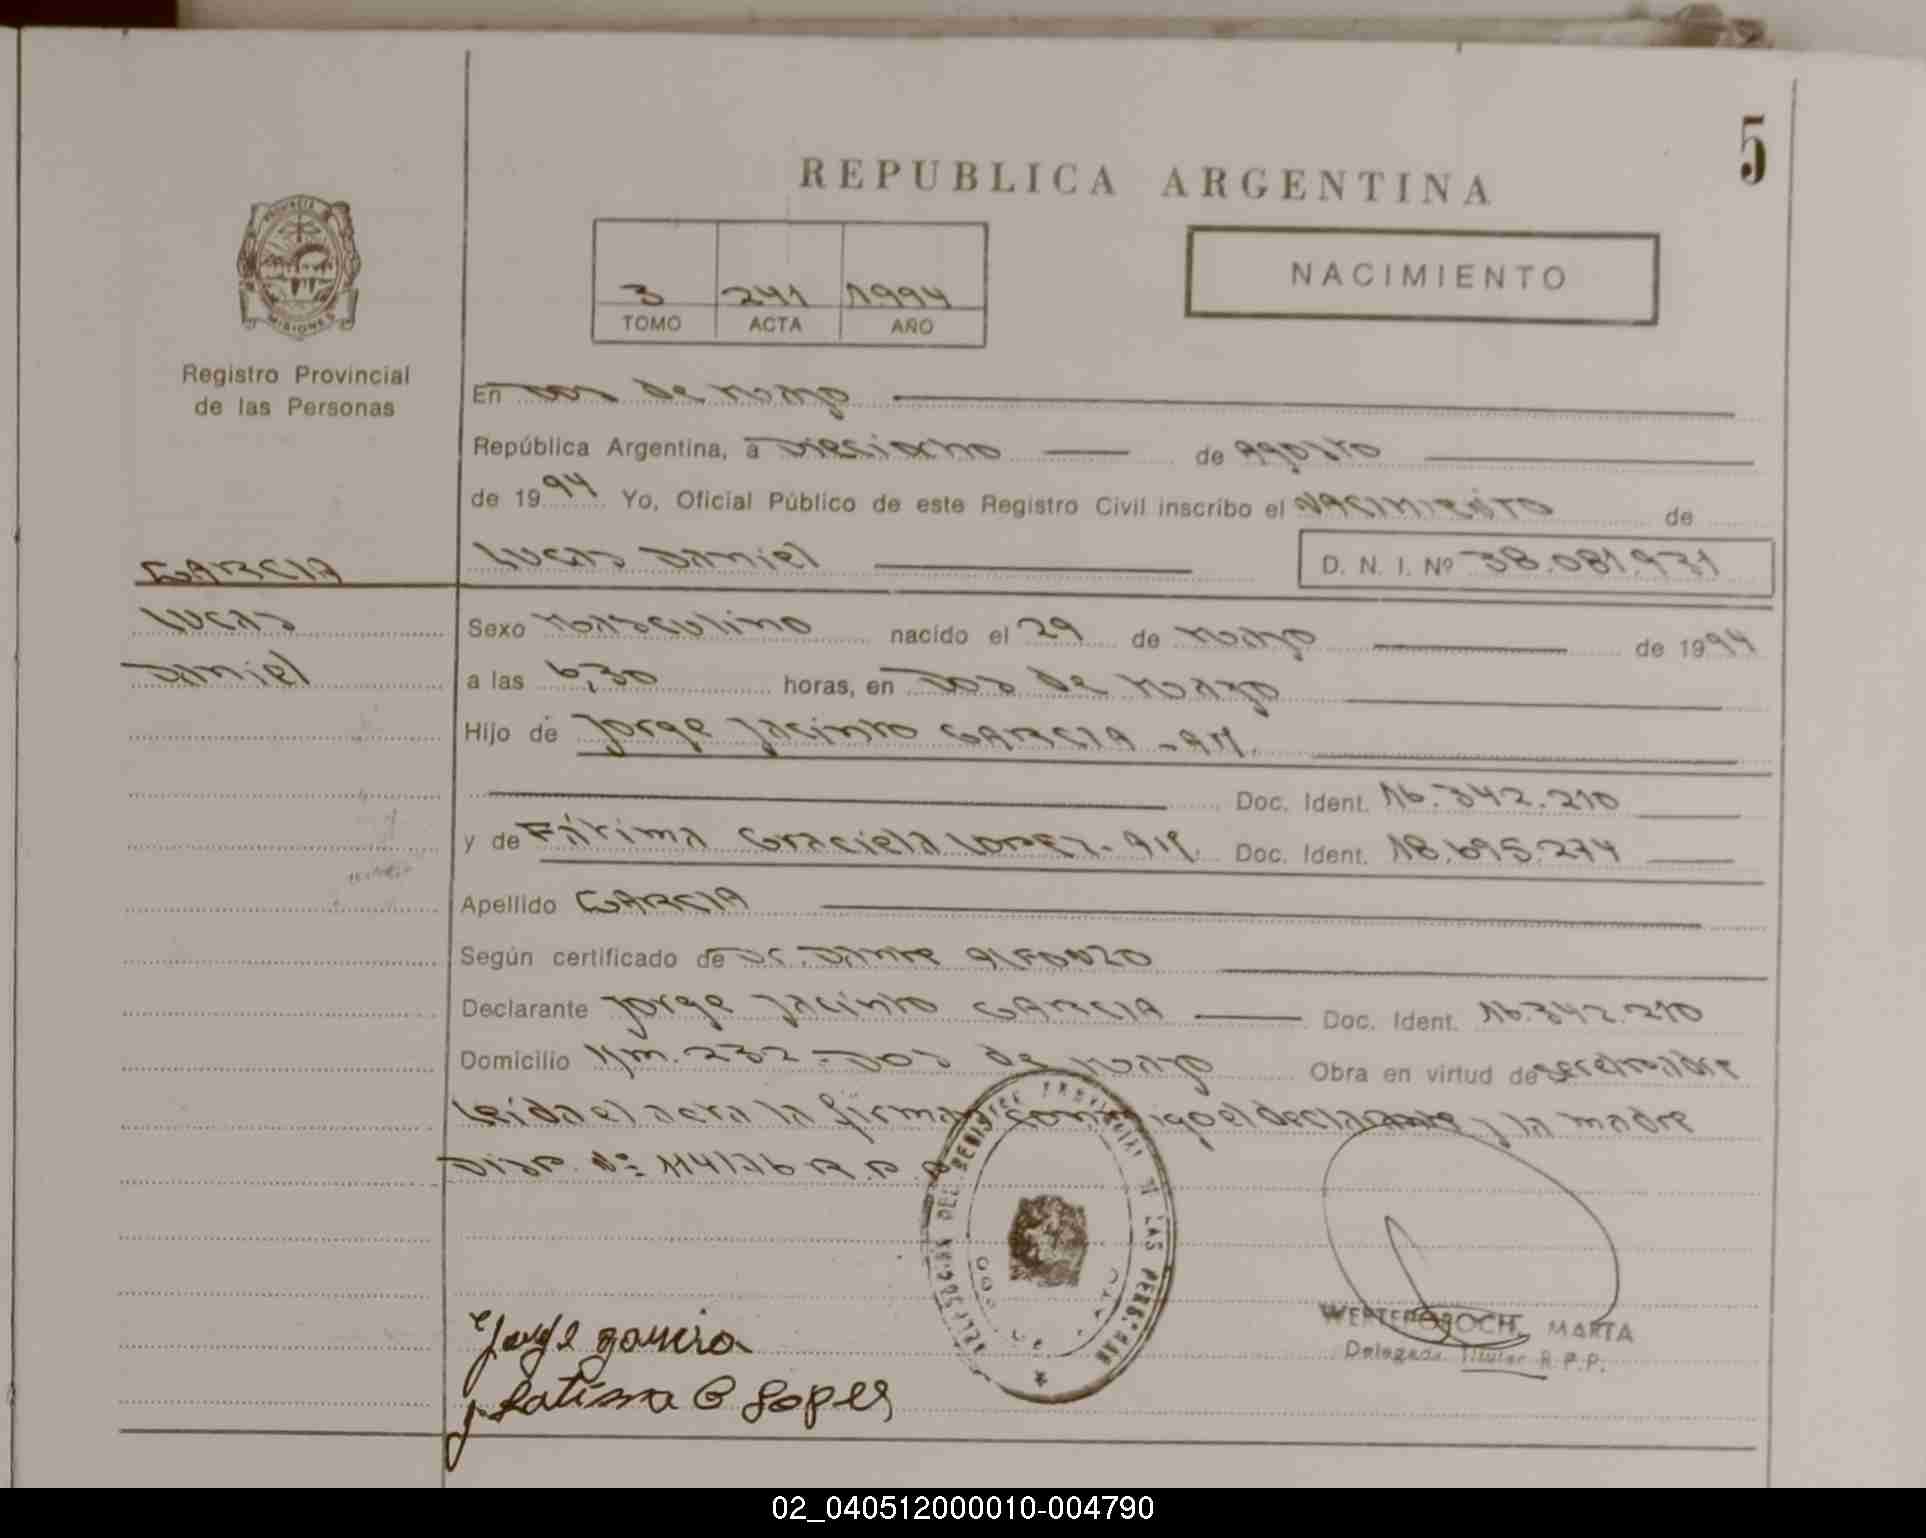 5
REPUBLICA ARGENTINA
PROVINCIA
MISIONES
Registro Provincial
de las Personas
3 241 1994
TOMO ACTA AÑO
NACIMIENTO
En Dos de Mayo
República Argentina, a Dieciocho de Agosto
de 1994 Yo, Oficial Público de este Registro Civil inscribo el NACIMIENTO de
GARCIA
Lucas Daniel D. N. I. Nº 38.081.931
Lucas
Daniel
Sexo Masculino nacido el 29 de Mayo de 1994
a las 6,30 horas, en Dos de Mayo
Hijo de Jorge Jacinto GARCIA - Arg.
Doc. Ident. 16.342.210
y de Fátima Graciela LOPEZ - Arg. Doc. Ident. 18.695.274
Apellido GARCIA
Según certificado de Dr. Dante Alfonzo
Declarante Jorge Jacinto GARCIA Doc. Ident. 16.342.210
Domicilio Km. 232 - Dos de Mayo Obra en virtud de ser el padre
Leida el acta la firman conmigo el declarante y la madre
Disp. Nº 114/76 R.P.P.
DEL REGISTRO PROVINCIAL DE LAS PERSONAS
Jorge Garcia
Fatima G Lopes
WERTEPOROCH, MARTA
Delegada Titular R.P.P.
02_040512000010-004790